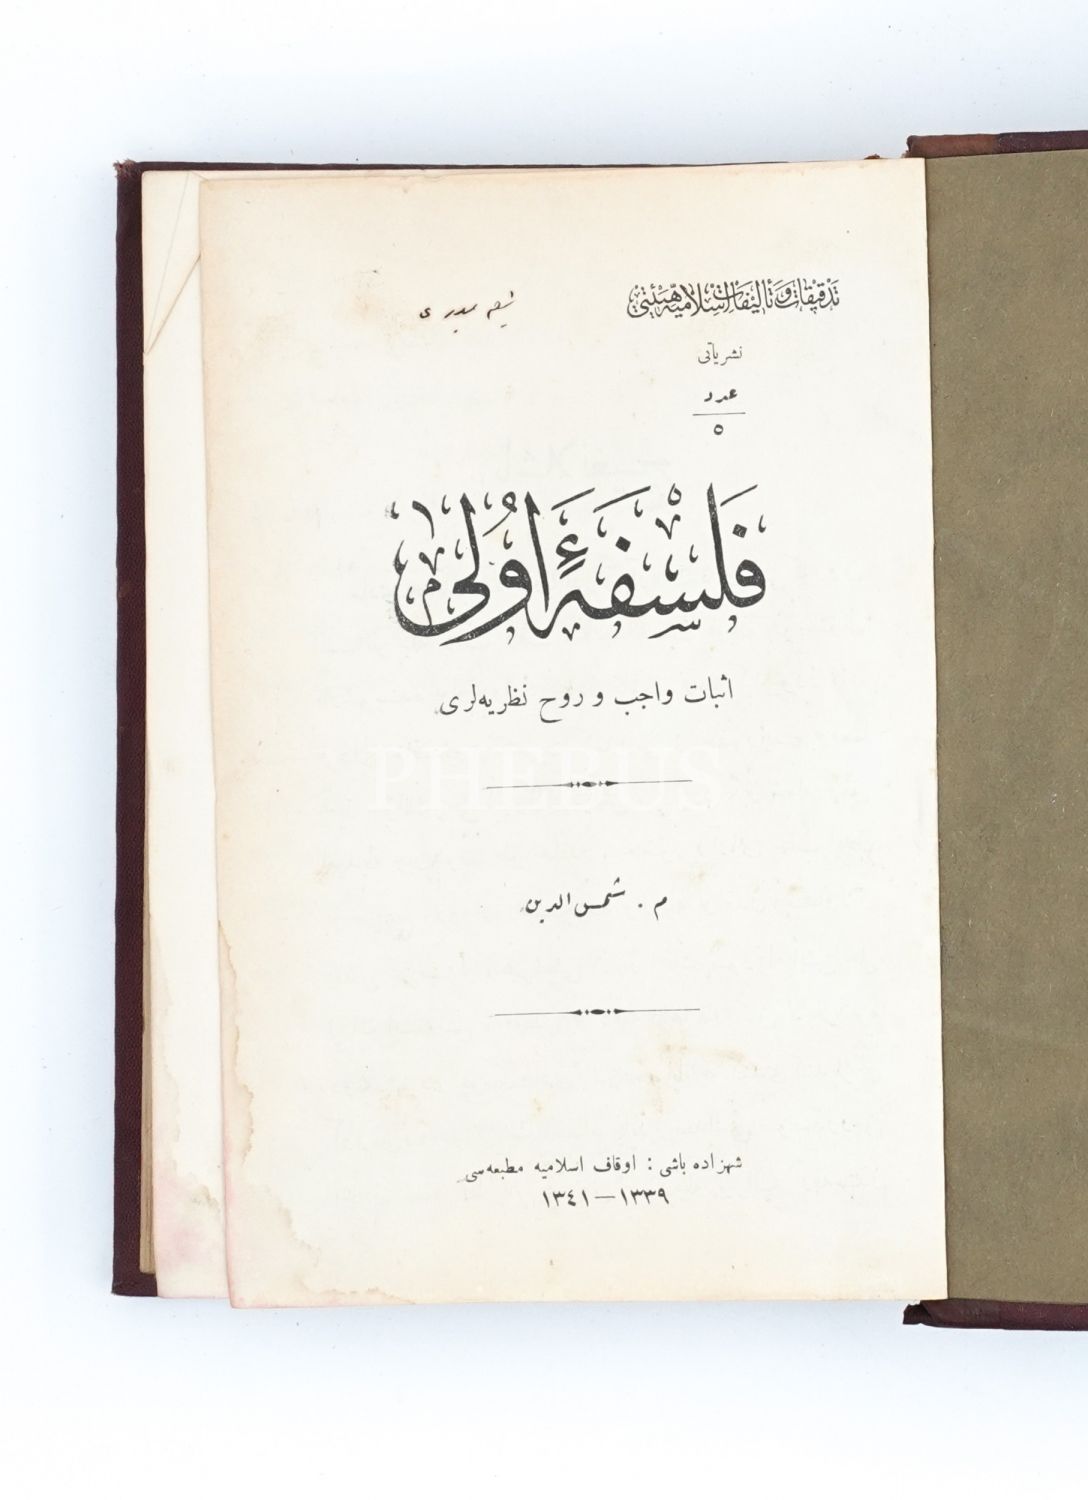 تدقيقات و تأليفات اسلاميه هيئتی
نشرياتی
عدد
٥
فَلْسَفَهٔ اُولٰی
اثبات واجب و روح نظريه‌لری
PHEBUS
م . شمس الدين
شهزاده باشی : اوقاف اسلاميه مطبعه‌سی
١٣٣٩ — ١٣٤١